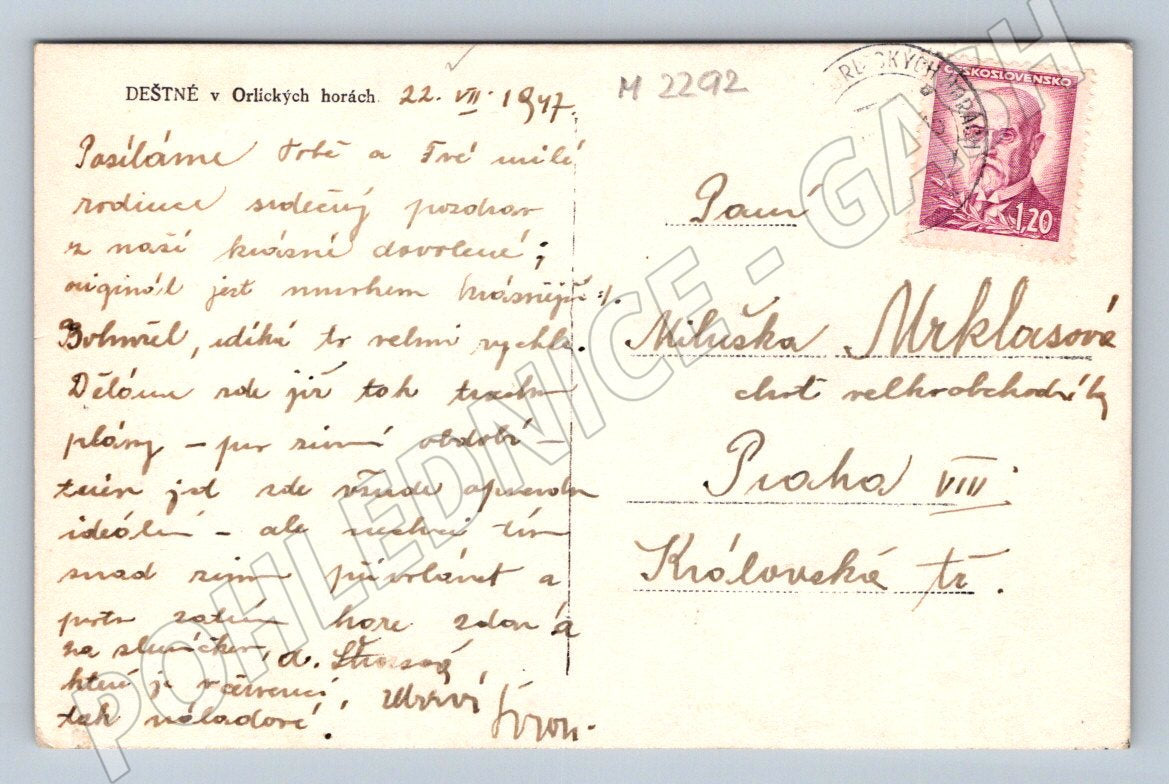 DEŠTNÉ v Orlických horách. 22. VII. 1947.
M 2292
ORLICKÝCH HORÁCH
ČESKOSLOVENSKO
1,20
Posíláme Tobě a Tvé milé
rodince srdečný pozdrav
z naší krásné dovolené;
originál jest mnohem krásnější :/.
Bohužel, utíká to velmi rychle.
Děláme zde již tak trochu
plány – pro zimní období –
terén jest zde všude opravdu
ideální – ale nechci tím
snad zimu přivolávat a
proto zatím hore zdar a
na sluníčko,
které je v červenci
tak náladové!
Paní
Miluška Mrklasová
choť velkoobchodníka
Praha VIII
Královská tř.
POHLEDNICE - GASH